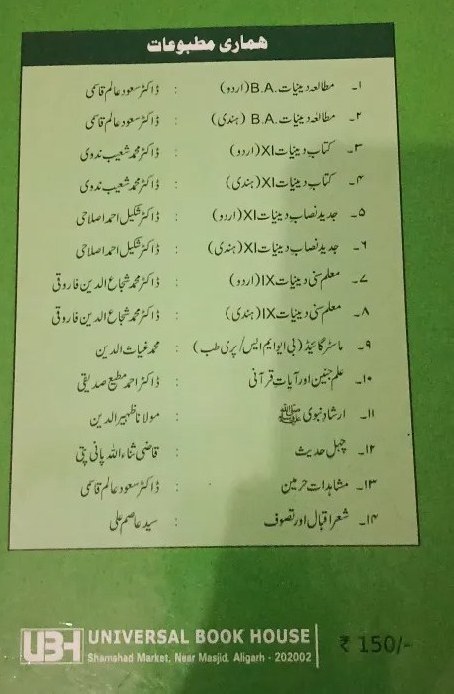 ہماری مطبوعات
۱۔ مطالعہ دینیات .B.A (اردو) : ڈاکٹر سعود عالم قاسمی
۲۔ مطالعہ دینیات .B.A (ہندی) : ڈاکٹر سعود عالم قاسمی
۳۔ کتاب دینیات XI (اردو) : ڈاکٹر محمد شعیب ندوی
۴۔ کتاب دینیات XI (ہندی) : ڈاکٹر محمد شعیب ندوی
۵۔ جدید نصاب دینیات XI (اردو) : ڈاکٹر شکیل احمد اصلاحی
۶۔ جدید نصاب دینیات XI (ہندی) : ڈاکٹر شکیل احمد اصلاحی
۷۔ معلم سنی دینیات IX (اردو) : ڈاکٹر محمد شجاع الدین فاروقی
۸۔ معلم سنی دینیات IX (ہندی) : ڈاکٹر محمد شجاع الدین فاروقی
۹۔ ماسٹر گائیڈ (بی یو ایم ایس/پری طب) : محمد غیاث الدین
۱۰۔ علم جنین اور آیات قرآنی : ڈاکٹر احمد مطیع صدیقی
۱۱۔ ارشاد نبوی ﷺ : مولانا ظہیر الدین
۱۲۔ چہل حدیث : قاضی ثناء اللہ پانی پتی
۱۳۔ مشاہدات حرمین : ڈاکٹر سعود عالم قاسمی
۱۴۔ شعر اقبال اور تصوف : سید عاصم علی
UBH UNIVERSAL BOOK HOUSE
Shamshad Market, Near Masjid, Aligarh - 202002
₹ 150/-